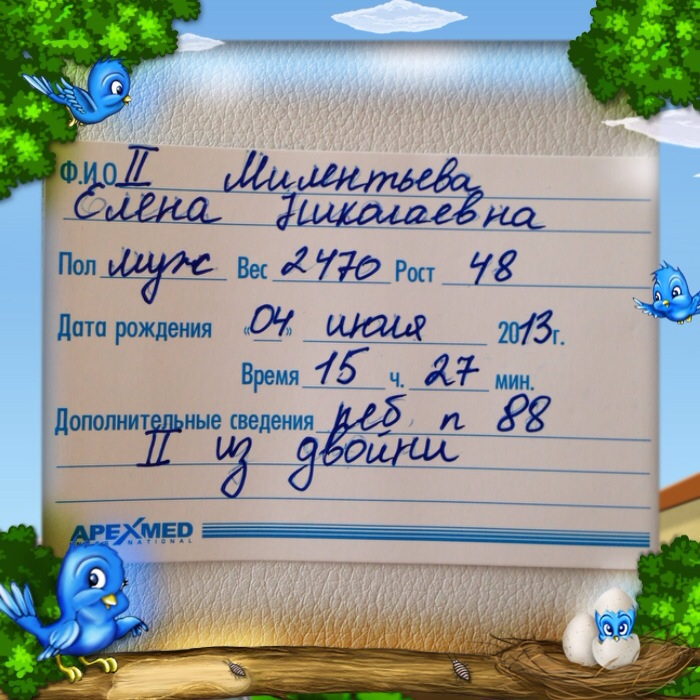 Ф.И.О II Милентьева
Елена Николаевна
Пол муж Вес 2470 Рост 48
Дата рождения «04» июля 2013г.
Время 15 ч. 27 мин.
Дополнительные сведения реб. п 88
II из двойни
APEXMED
INTERNATIONAL